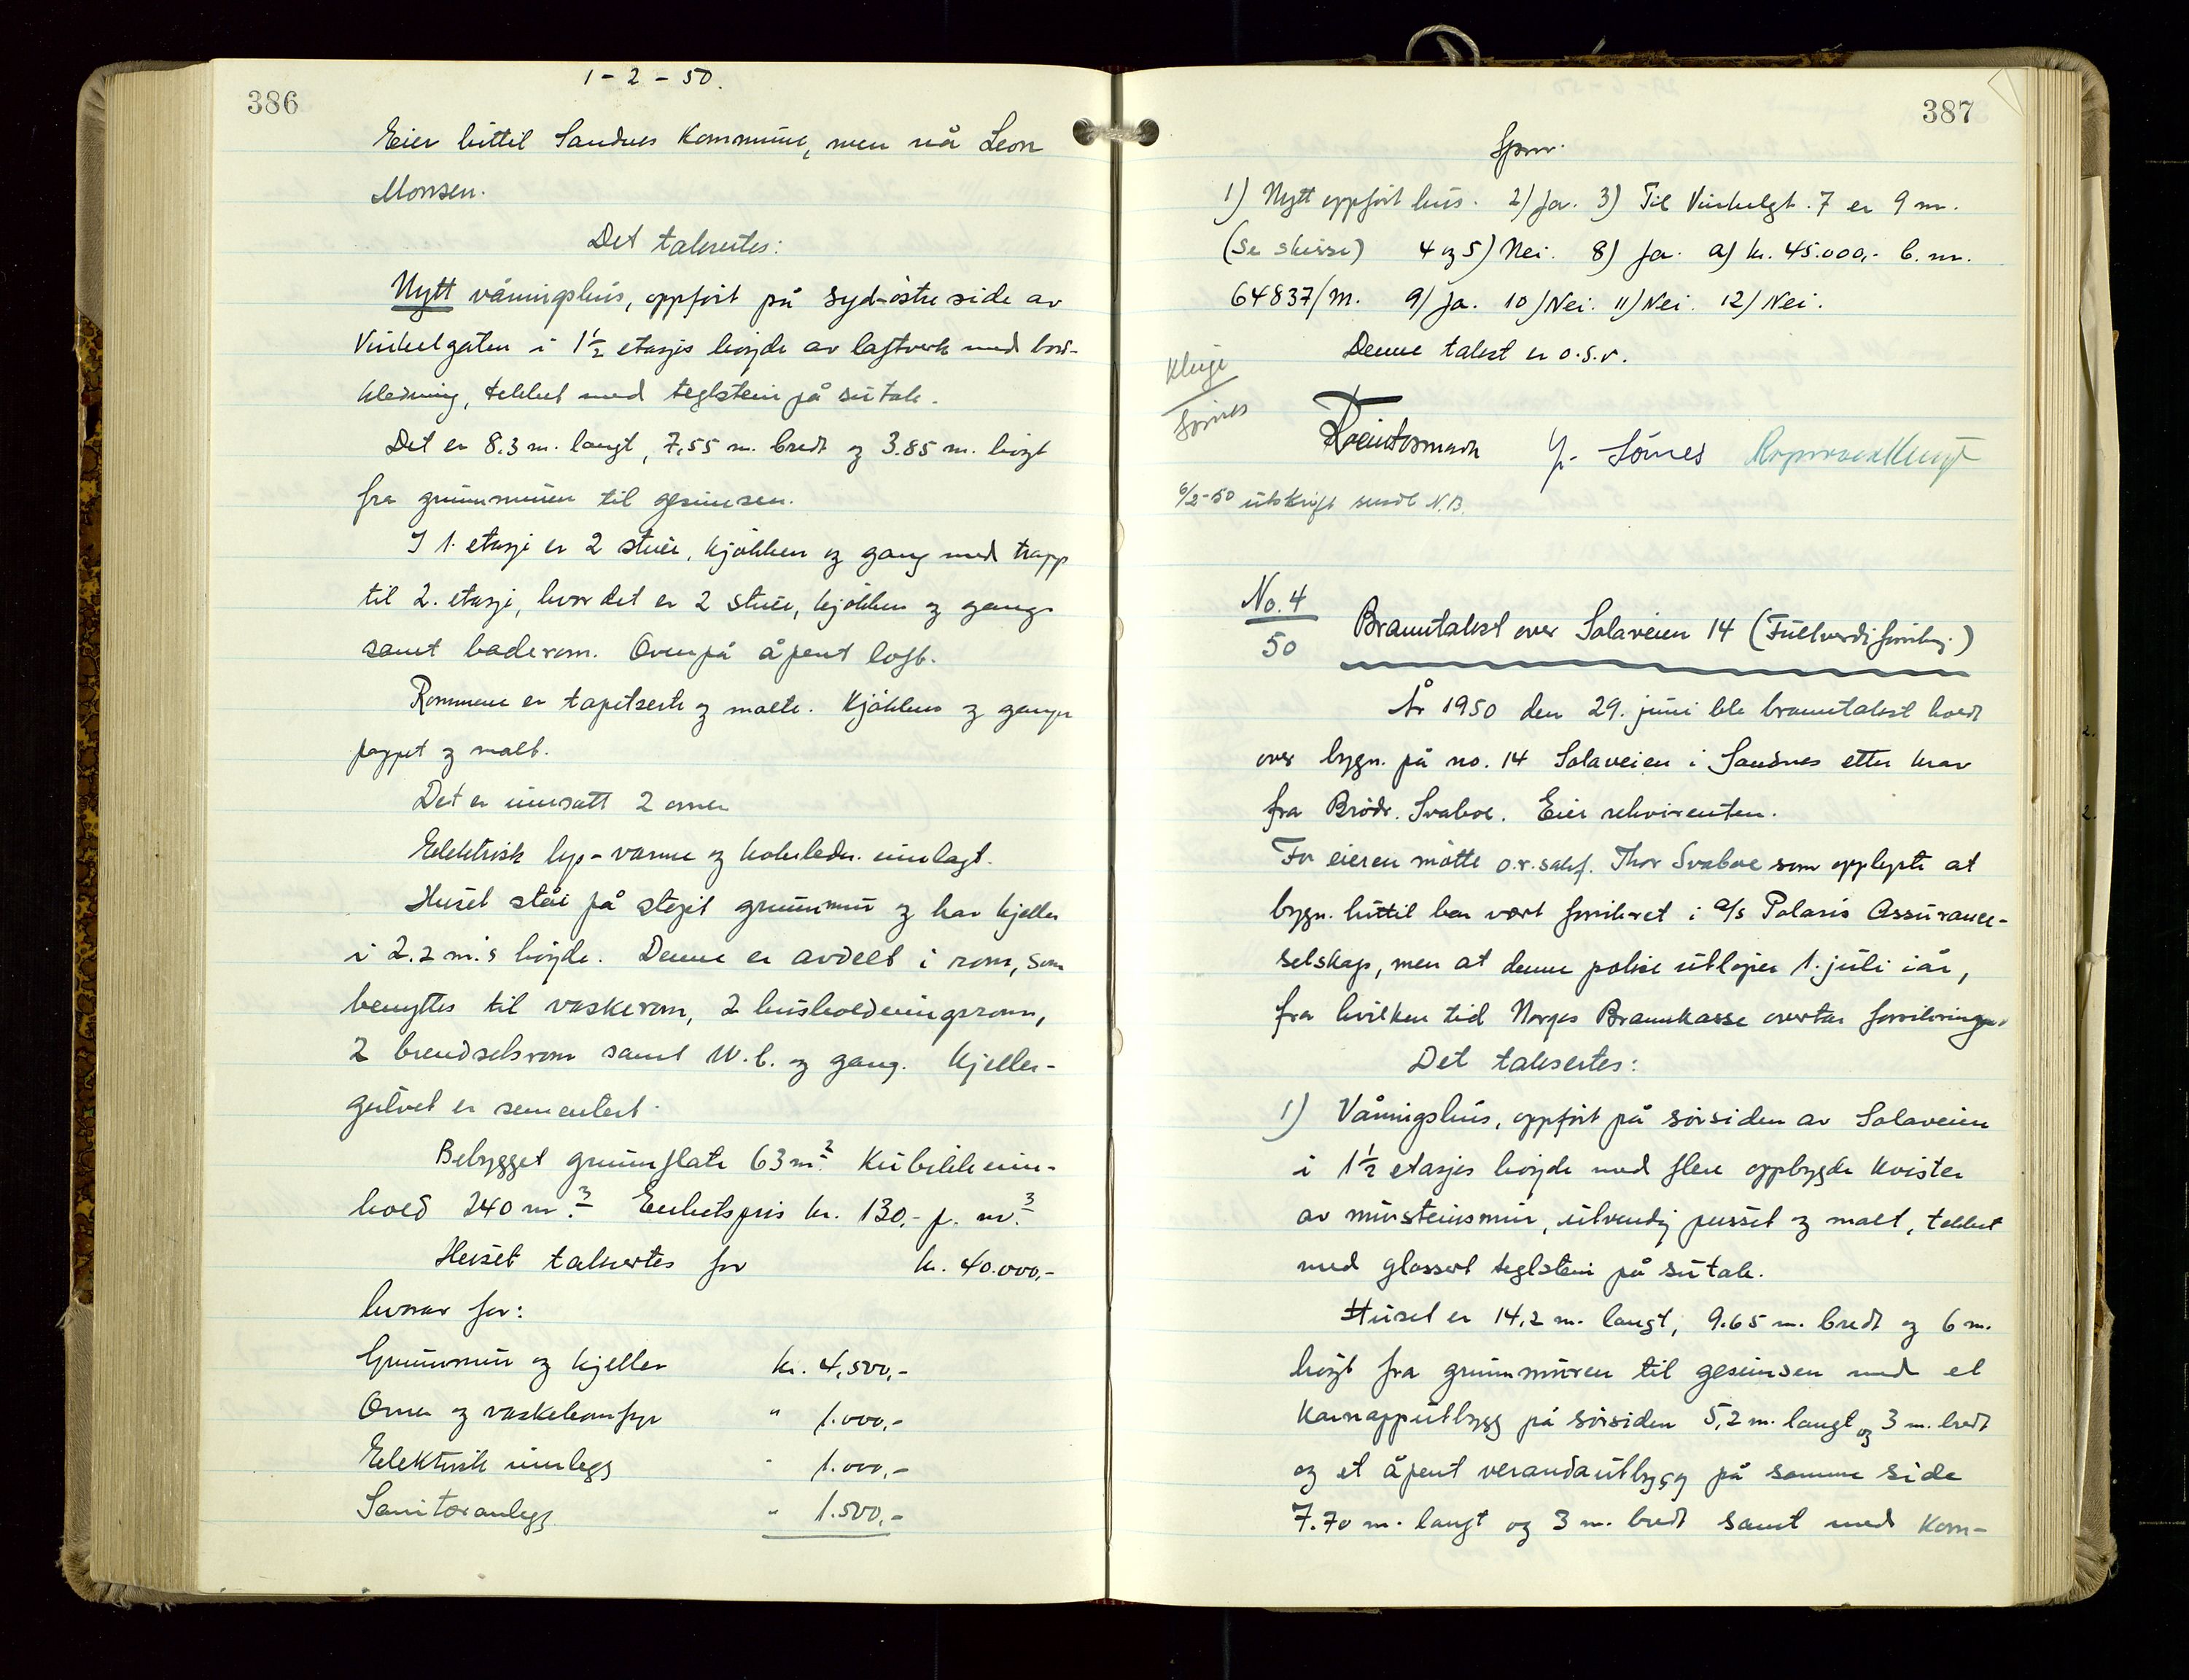 386
1 - 2 - 50.
Eier hittil Sandnes Kommune, men nå Leon
Monsen.
Det takseres:
Nytt våningshus, oppfört på syd-östre side av
Vinkelgaten i 1½ etasjes höyde av laftverk med bord-
kledning, tekket med teglstein på sutak.
Det er 8,3 m. langt, 7,55 m. bredt og 3.85 m. höyt
fra grunnmuren til gesimsen.
I 1. etasje er 2 stuer, kjökken og gang med trapp
til 2. etasje, hvor det er 2 stuer, kjökken og gang
samt baderom. Ovenpå åpent loft.
Rommene er tapetserte og malte. Kjökken og ganger
pappet og malt.
Det er innsatt 2 ovner
Elektrisk lys-varme og kokeledn. innlagt.
Huset står på stöpt grunnmur og har kjeller
i 2.2 m.s höyde. Denne er avdelt i rom, som
benyttes til vaskerom, 2 husholdningsrom,
2 brendselsrom samt W.C. og gang. Kjeller-
gulvet er sementert.
Bebygget grunnflate 63 m². Kubikkinn-
hold 240 m³. Enhetspris kr. 130,- p. m³.
Huset taksertes for kr. 40.000,-
hvorav for:
Grunnmur og kjeller kr. 4,500,-
Ovner og vaskekomfyr " 1.000,-
Elektrisk innlegg " 1.000,-
Sanitæranlegg " 1.500,-
387
Spm.
1) Nytt oppfört hus. 2) Ja. 3) Til Vinkelgt. 7 er 9 m.
(Se skisse) 4 og 5) Nei. 8) Ja. a) kr. 45.000,- b. nr.
64837/M. 9) Ja. 10) Nei. 11) Nei. 12) Nei.
Denne takst er o.s.v.
Kluge
Sörnes
Sörnes
6/2-50 utskrift sendt N.B.
No. 4
50
Branntakst over Solaveien 14 (Fullverdiforsikr.)
År 1950 den 29. juni ble branntakst holdt
over bygn. på no. 14 Solaveien i Sandnes etter krav
fra Brödr. Svaboe. Eier rekvirenten.
For eieren mötte o.r.sakf. Thor Svaboe som opplyste at
bygn. hittil har vært forsikret i A/S Polaris Assurance-
selskap, men at denne polise utlöper 1. juli iår,
fra hvilken tid Norges Brannkasse overtar forsikringen.
Det taksertes:
1) Våningshus, oppfört på sörsiden av Solaveien
i 1½ etasjes höyde med flere oppbygde kvister
av mursteinsmur, utvendig pusset og malt, tekket
med glassert teglstein på sutak.
Huset er 14,2 m. langt, 9.65 m. bredt og 6 m.
höyt fra grunnmuren til gesimsen med et
karnapputbygg på sörsiden 5,2 m. langt og 3 m. bredt
og et åpent verandautbygg på samme side
7.70 m. langt og 3 m. bredt samt med kom-